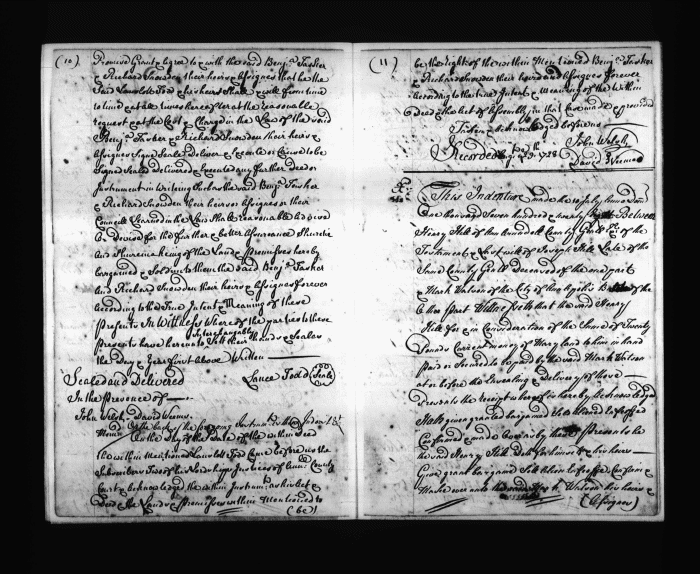 (10)
Promise Grant & agree to & with the said Benj.ª Tasker
& Richard Snowden their heirs & assignes that he the
said Lancelott Todd & his heirs Shall & will from time
to time & at all times hereafter at the reasonable
request & at the Cost & Charge in the Law of the said
Benj.ª Tasker & Richard Snowden their heirs &
Assignes Signe Seale Deliver & Execute or Cause to be
Signed Sealed Delivered & Executed any further Deed or
Instrument in writing Such as the said Benj.ª Tasker
& Richard Snowden their heirs or Assignes or their
Councill learned in the Law Shall reasonable advise
be Devised for the further & better Assurance Sureties
And Suremaking of the Land & premisses hereby
bargained & Sold unto them the said Benj.ª Tasker
And Richard Snowden their heirs & Assignes forever
According to the True Intent & Meaning of these
presents In Wittness Whereof the parties to these
Interchangeably
presents have hereunto Sett their hands & Seales
the Day & Year first Above Written
Sealed and Delivered Lance Todd (Seale)
In the presence of
John Welsh David Weems
On the back of the foregoing Instrum.t
On the Day of the Date of the within Deed
the within Mentioned Lancelott Todd Came before us the
Subscribers Two of his Lordships Justices of Ann County
Court & Acknowledged the within Instrum.t as his Act &
Deed the Land & premisses within Mentioned to
(be)
(11)
be the right of the within Mentioned Benj.ª Tasker
& Richard Snowden their heires and Assignes forever
According to the true Intent & Meaning of the within
Deed & the Act of Assembly in that Case made & provided
Taken & Acknowledged before us
John Welsh
Recorded Aug. 29th 1728
David Weems
This Indenture made the
One thousand Seven hundred twenty Between
Henry Hill of Ann Arundell County Gent of the
Testament & last will of Joseph Hill Late of the
Same County Gent Deceased of the one part
& Mark Watson of the City of Annapolis of the
Other part Wittnesseth that the said Henry
Hill for & in Consideration of the Sume of Twenty
Pounds Current money of Maryland to him in hand
Paid or Secured to be paid by the said Mark Watson
at or before the Ensealing & Delivery of these
Presents the receipt whereof is hereby Acknowledged
Hath given granted bargained Sold Aliened Enfeoffed
Confirmed & made Over & by these presents he
the said Henry Hill Doth for himself & his heirs
Give grant bargaine Sell Alien Enfeoffe Confirm &
Make over unto the said Mark Watson his heirs &
(Assignes)